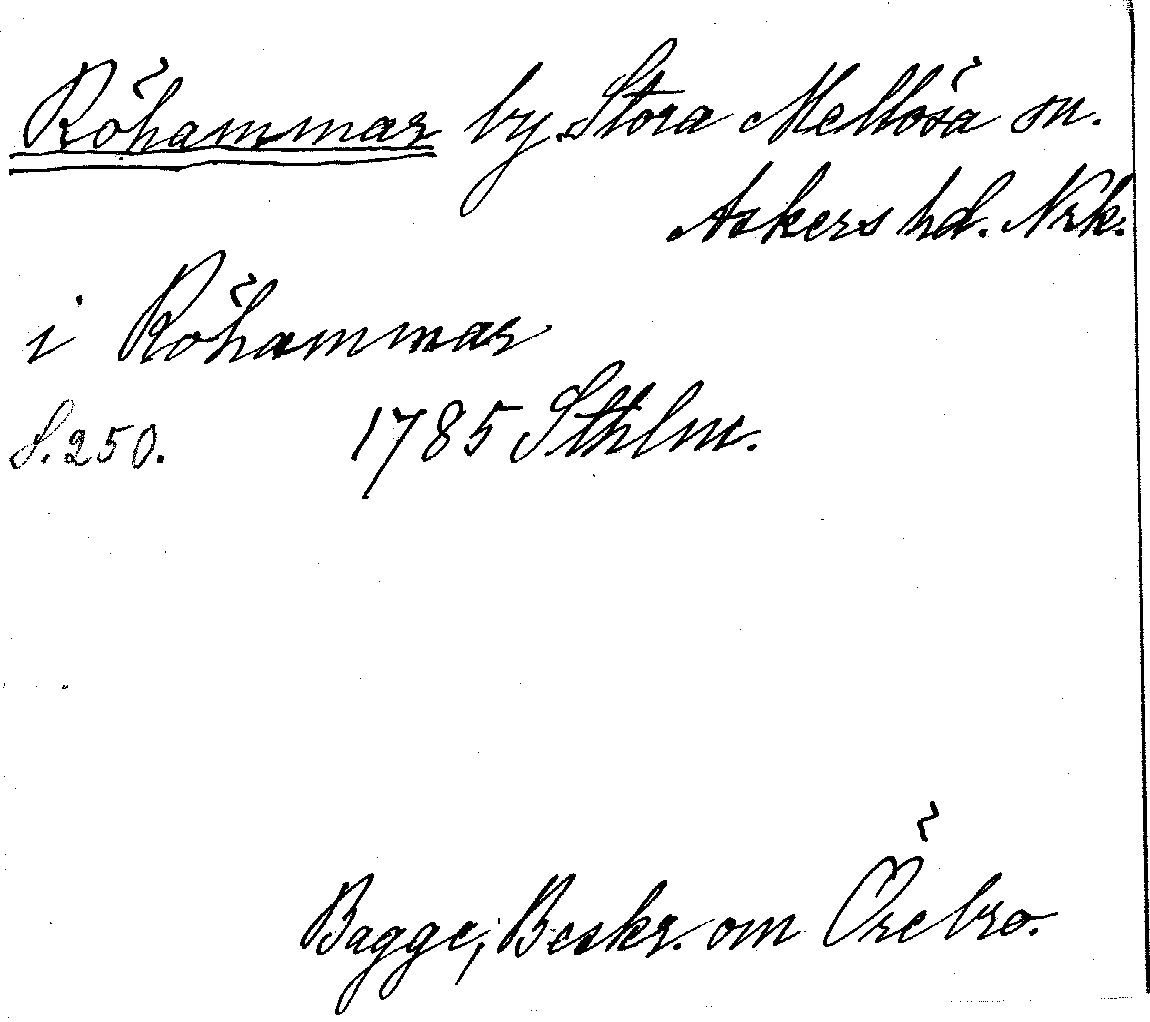 Röhammar by Stora Mellösa sn.
Askers hd. Nrk.
i Röhammar
S. 250. 1785 Sthlm.
Bagge, Beskr. om Örebro.